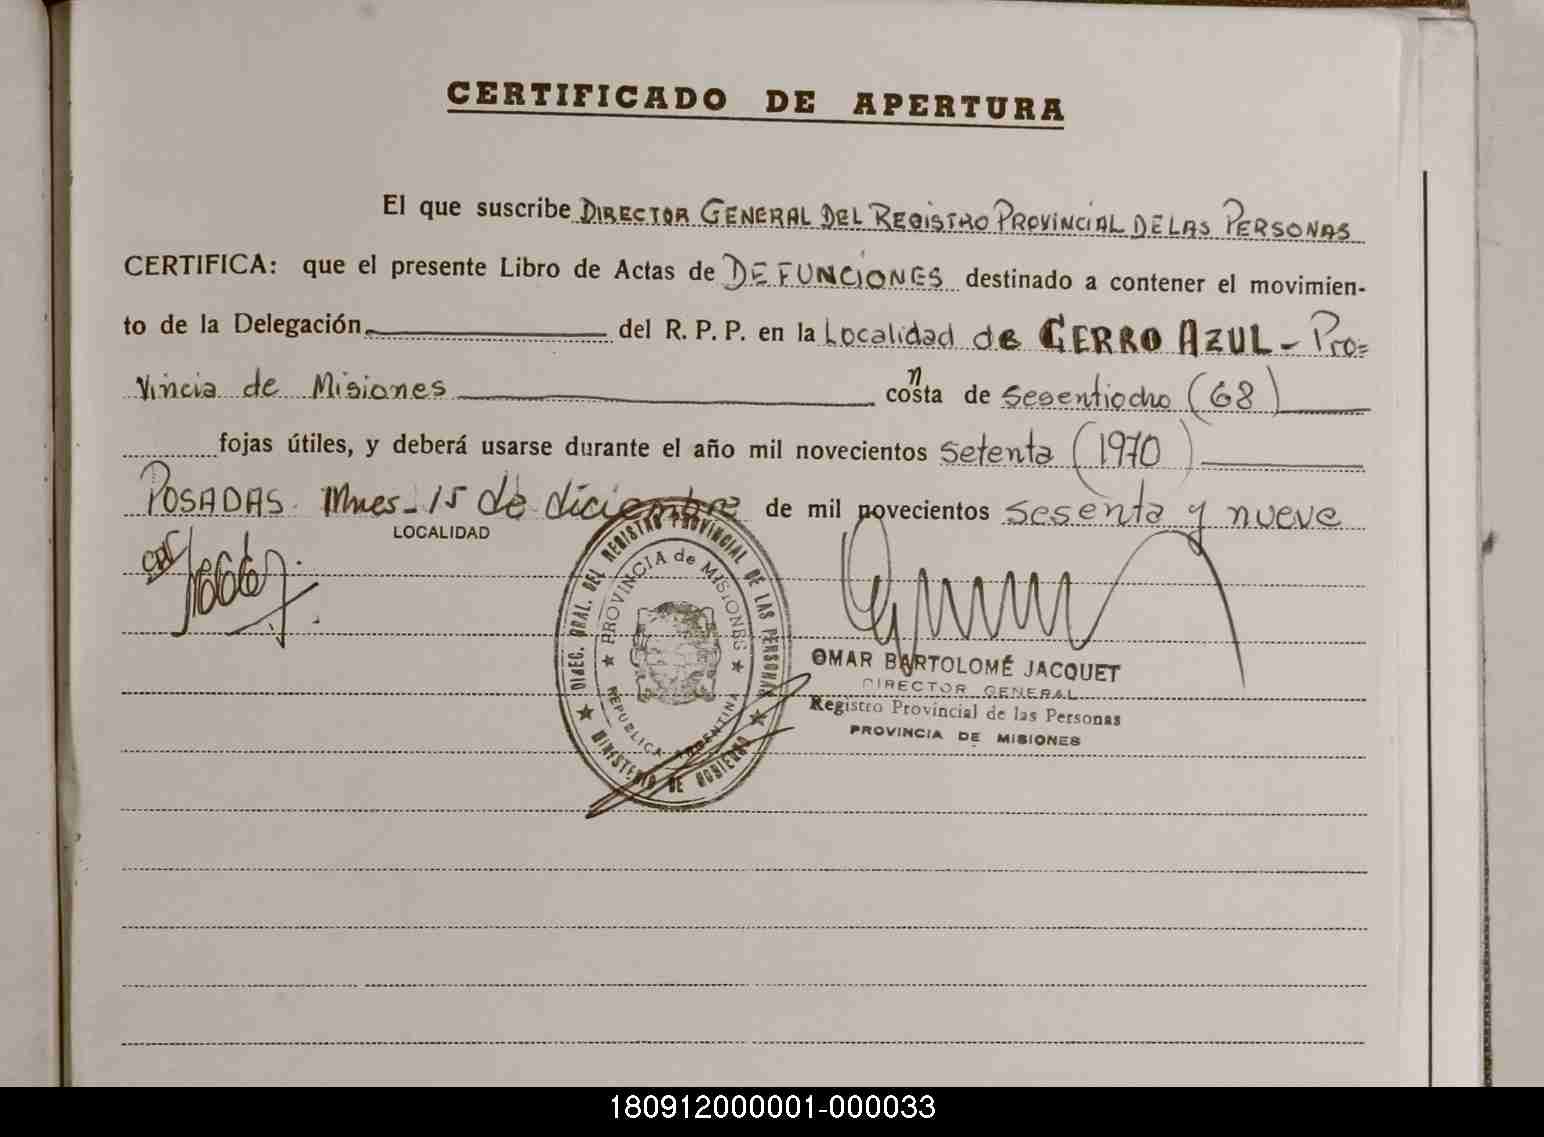 CERTIFICADO DE APERTURA
El que suscribe DIRECTOR GENERAL DEL REGISTRO PROVINCIAL DE LAS PERSONAS
CERTIFICA: que el presente Libro de Actas de DEFUNCIONES destinado a contener el movimien-
to de la Delegación del R. P. P. en la Localidad de CERRO AZUL - Pro=
vincia de Misiones consta de sesentiocho (68)
fojas útiles, y deberá usarse durante el año mil novecientos setenta (1970)
POSADAS. Mnes- 15 de diciembre de mil novecientos sesenta y nueve
LOCALIDAD
DIREC. GRAL. DEL REGISTRO PROVINCIAL DE LAS PERSONAS
PROVINCIA de MISIONES
REPUBLICA ARGENTINA
MINISTERIO DE GOBIERNO
OMAR BARTOLOMÉ JACQUET
DIRECTOR GENERAL
Registro Provincial de las Personas
PROVINCIA DE MISIONES
180912000001-000033